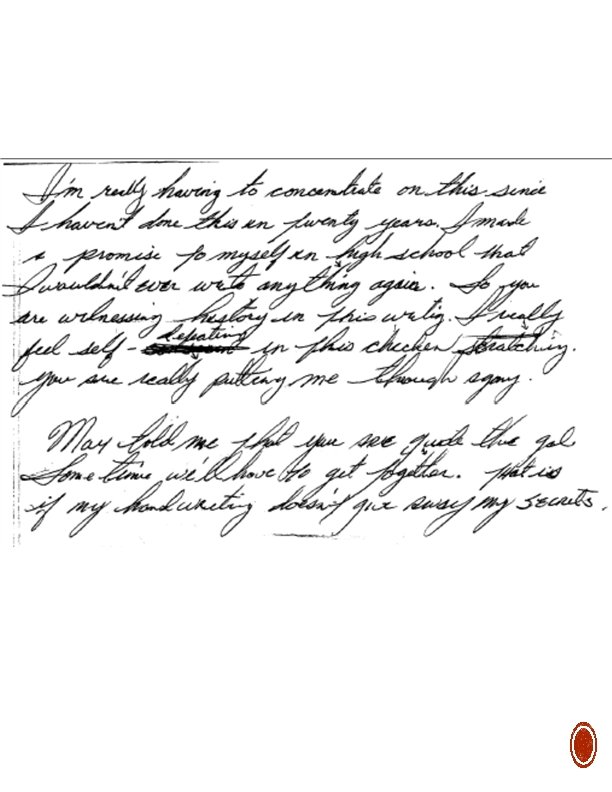 I'm really having to concentrate on this since
I haven't done this in twenty years. I made
a promise to myself in high school that
I wouldn't ever write anything again. So you
are witnessing history in this writig. I really
feel self - defeating in this chicken scratching.
You are really putting me through agony.
Max told me that you are quite the gal
Some time we'll have to get together. That is
if my handwriting doesn't give away my secrets.